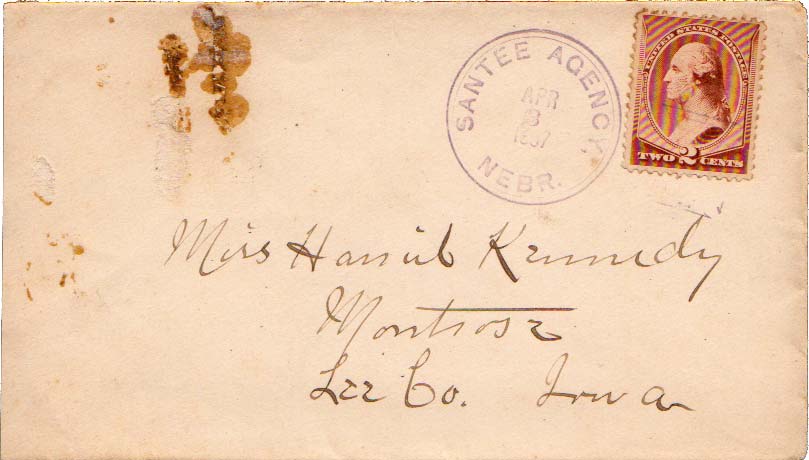 SANTEE AGENCY,
APR
3
1887
NEBR.
UNITED STATES POSTAGE
TWO 2 CENTS
Miss Harriet Kennedy
Montrose
Lee Co. Iowa